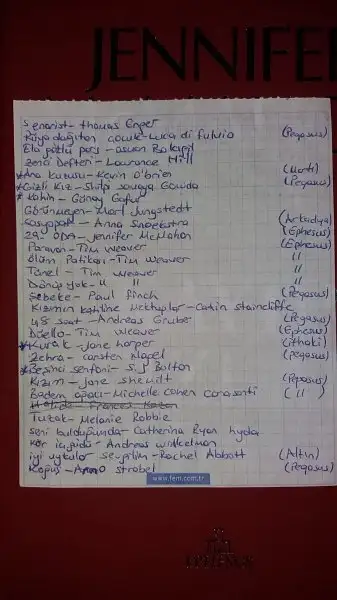 JENNIFE
Senarist - Thomas Enger
Rüya dağıtan çocuk - Luca di Fulvio (Pegasus)
Ela gözlü pars -
Zenci Defteri - Lawrence Hill
*Ana kuzusu - Kevin O'brien (Martı)
*Gizli Kız - Shilpi Somaya Gowda (Pegasus)
*Kahin - Günay Gafur
Görünmeyen - Mari Jungstedt
Kasvopah - Anna Snoekstra (Arkadya)
29. ODA - Jennifer McMahon (Ephesus)
Paravan - Tim weaver (Ephesus)
Ölüm Patikası - Tim weaver "
Tünel - Tim weaver "
Dönüş yok - " " "
Şebeke - Paul finch (Pegasus)
Kızımın katiline Mektuplar - Cath Staincliffe
48 saat - Andreas Gruber (Pegasus)
Düello - Tim weaver (Ephesus)
*Kurak - Jane harper (ithaki)
Zehra - Carsten (Pegasus)
*Beşinci senfoni - S. J Bolton
Kızım - Jane shemilt (Pegasus)
Badem ağacı - Michelle cohen corasanti ( " )
Tuzak - Melanie Raabe
Seni bulduğunda - Catherine Ryan hyde
Kör içgüdü - Andreas winkelman
iyi uykular sevgilim - Rachel Abbott (Altın)
Kopuş - Arno strobel (Pegasus)
www.fem.com.tr
EPHESUS